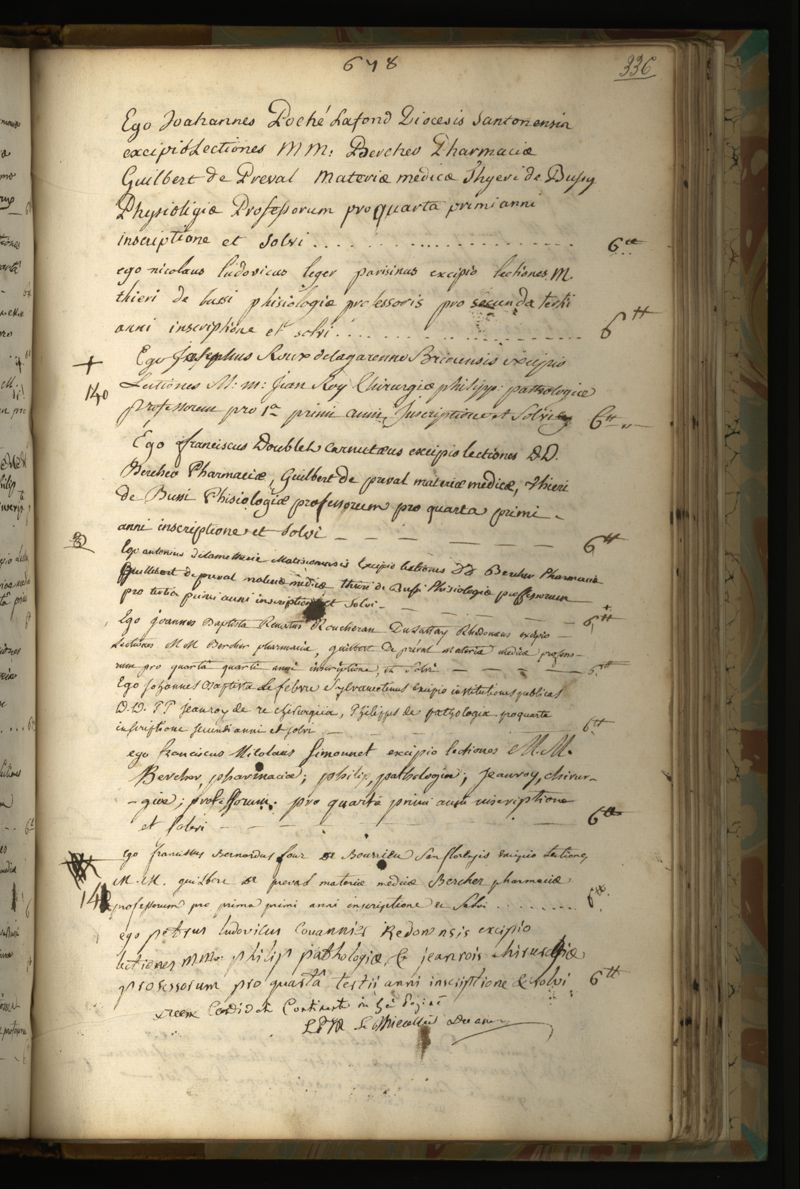 678
336
Ego Joahannes Poché Lafond Diocesis Santonensis
excipio Lectiones M M: Bercher Pharmaciæ
Guilbert de Preval Materiæ medicæ Thyeri de Bussy
Physioligiæ Professorum pro quarta primi anni
inscriptione et Solvi 6tt
ego nicolaus ludovicus leger parisinus excipio lectiones M.
thieri de bussi phisiologiæ professoris pro secunda tertii
anni inscriptione et solvi 6tt
+ Ego Josephus Roux delagarenne excipio
140 Lectiones M: m: Jean Roy Chirurgiæ philipp: pathologiæ
professorum pro 1a primi anni Inscriptione et Solvi 6tt
Égo franciscus Doublet carnutæus excipio lectiones DD.
Bercher Pharmaciæ, Guilbert de preval materiæ medicæ, thieri
de Bussi Phisiologiæ professorum pro quarta primi
anni inscriptione et solvi 6tt
Ego antonius delametherie Matisconensis Excipio lectiones DD Bercher Pharmaciæ
Guillbert de preval materiæ médicæ thieri de Bussi Phisiologiæ professorum
pro tertia primi anni inscriptione et solvi 6tt
Ego joannes Baptista Renatus Roucheran Rhedonæus excipio
Lectiones M M Bercher pharmaciæ, guilbert De preval materiæ medicæ profess-
rum pro quarta quarti anni inscriptione, et solvi 6tt
Ego Johannes Baptista Lefebvre Sylvanectinus Excipio institutiones publicas
D.D. PP jeauroy de re chirurgica, Philipps de pathologia proquarta
inscriptione secundi anni et solvi 6tt
ego franciscus Nicolaus Simonnet excipio lectiones M.M.
Bercher, pharmaciæ; philip, pathologiæ; jeauroy, chirur-
-giæ; professorum. pro quarta primi anni inscriptione
et solvi 6tt
ego franciscus Bernardus four de excipio lectiones
141 M. M. guilbert de preval materiæ médicæ Bercher pharmaciæ
professorum pro prima primi anni inscriptione et Solvi 6tt
ego petrus ludovicus Redonensis excipio
lectiones mm: philip pathologiæ, & jeanrois chirurgiæ
professorum pro quarta tertii anni inscriptione & solvi 6tt
in
Le Thieullier Decanus